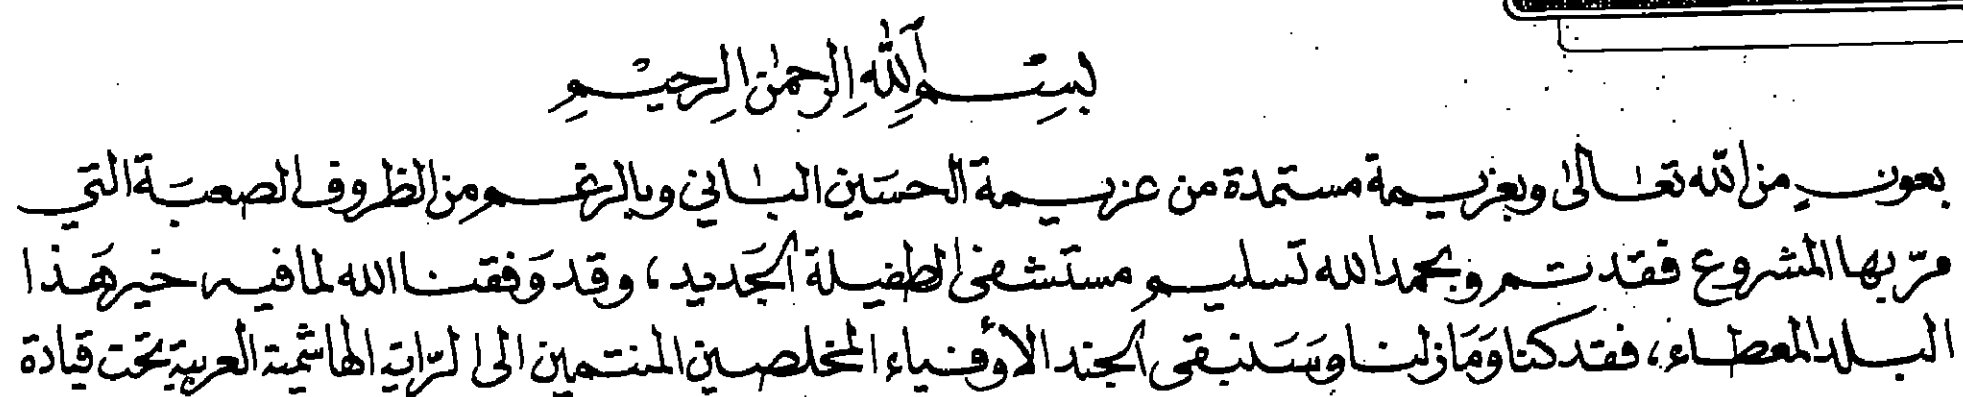 بسم الله الرحمن الرحيم
بعون من الله تعالى وبعزيمة مستمدة من عزيمة الحسين الباني وبالرغم من الظروف الصعبة التي
مرّ بها المشروع فقد تم وبحمد الله تسليم مستشفى الطفيلة الجديد، وقد وفقنا الله لما فيه خير هذا
البلد المعطاء، فقد كنا وما زلنا وسنبقى الجند الأوفياء المخلصين المنتمين الى الرّاية الهاشمية العربية تحت قيادة